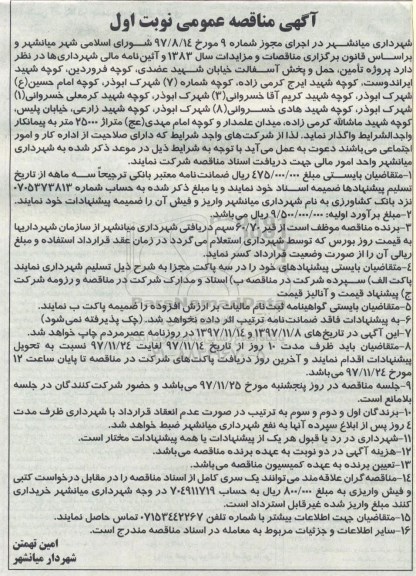 آگهی مناقصه عمومی نوبت اول
شهرداری میانشهر در اجرای مجوز شماره ۹ مورخ ۹۷/۸/۱۴ شورای اسلامی شهر میانشهر و
براساس قانون برگزاری مناقصات و مزایدات سال ۱۳۸۳ و آئین‌نامه مالی شهرداری‌ها در نظر
دارد پروژه تأمین، حمل و پخش آسفالت خیابان شهید عضدی، کوچه فروردین، کوچه شهید
ایراندوست، کوچه شهید ایرج کرمی زاده، کوچه شماره (۷) شهرک ابوذر، کوچه امام حسین(ع)
شهرک ابوذر، کوچه شهید کریم آقا خسروانی(۳) شهرک ابوذر، کوچه شهید کرمعلی خسروانی(۱)
شهرک ابوذر، کوچه شهید هادی خسروانی(۸) شهرک ابوذر، کوچه شهید زارعی، خیابان پلیس،
کوچه شهید ماشالله کرمی زاده، میدان علمدار و کوچه امام مهدی(عج) متراژ ۲۵۰۰۰ متر به پیمانکار
واجدالشرایط واگذار نماید. لذا از شرکت‌های واجد شرایط که دارای صلاحیت از اداره کار و امور
اجتماعی می‌باشند دعوت به عمل می‌آید با توجه به شرایط ذیل در موعد ذکر شده به شهرداری
میانشهر واحد امور مالی جهت دریافت اسناد مناقصه شرکت نمایند.
۱-متقاضیان بایستی مبلغ ۴۷۵/۰۰۰/۰۰۰ ریال ضمانت‌نامه معتبر بانکی ترجیحاً سه ماهه از تاریخ
تسلیم پیشنهادها ضمیمه اسناد خود نمایند و یا مبلغ ذکر شده به حساب شماره ۰۷۰۵۳۷۳۸۱۳
نزد بانک کشاورزی به نام شهرداری میانشهر واریز و فیش آن را ضمیمه پیشنهادات خود نمایند.
۲-مبلغ برآورد اولیه: ۹/۵۰۰/۰۰۰/۰۰۰ ریال می‌باشد.
۳-برنده مناقصه موظف است از قیر ۶۰/۷۰ سهم دریافتی شهرداری میانشهر از سازمان شهرداریها
به قیمت روز بورس که توسط شهرداری استعلام می‌گردد در زمان عقد قرارداد استفاده و مبلغ
ریالی آن را از صورت وضعیت قرارداد کسر نماید.
۴-متقاضیان بایستی پیشنهادهای خود را در سه پاکت مجزا به شرح ذیل تسلیم شهرداری نمایند
پاکت الف) سپرده شرکت در مناقصه ب) اسناد و مدارک شرکت در مناقصه و رزومه شرکت
ج) پیشنهاد قیمت و آنالیز قیمت
۵-متقاضیان بایستی گواهینامه ثبت‌نام مالیات بر ارزش افزوده را ضمیمه پاکت ب نمایند.
۶-به پیشنهادات فاقد ضمانت‌نامه ترتیب اثر داده نخواهد شد. (چک پذیرفته نمی‌شود)
۷-این آگهی در تاریخ‌های ۱۳۹۷/۱۱/۸ و ۱۳۹۷/۱۱/۱۴ در روزنامه عصرمردم چاپ خواهد شد.
۸-متقاضیان باید ظرف مدت ۱۰ روز از تاریخ ۹۷/۱۱/۱۴ لغایت ۹۷/۱۱/۲۴ نسبت به تحویل
پیشنهادات اقدام نمایند و آخرین روز دریافت پاکت‌های شرکت در مناقصه تا پایان ساعت ۱۲
مورخ ۹۷/۱۱/۲۴ می‌باشد.
۹-جلسه مناقصه در روز پنجشنبه مورخ ۹۷/۱۱/۲۵ می‌باشد و حضور شرکت‌کنندگان در جلسه
بلامانع است.
۱۰-برندگان اول و دوم و سوم به ترتیب در صورت عدم انعقاد قرارداد با شهرداری ظرف مدت
۴ روز پس از ابلاغ سپرده آنها به نفع شهرداری میانشهر ضبط خواهد شد.
۱۱-شهرداری در رد یا قبول هر یک از پیشنهادات یا همه پیشنهادات مختار است.
۱۲-هزینه آگهی در دو نوبت به عهده برنده مناقصه می‌باشد.
۱۳-تعیین برنده به عهده کمیسیون مناقصه می‌باشد.
۱۴-مناقصه‌گران علاقه‌مند می‌توانند یک سری کامل از اسناد مناقصه را در مقابل درخواست کتبی
و فیش واریزی به مبلغ ۸۰۰/۰۰۰ ریال به حساب ۷۰۴۹۱۱۷۱۹ در وجه شهرداری میانشهر خریداری
کنند مبلغ واریز شده غیرقابل استرداد است.
۱۵-متقاضیان جهت اطلاعات بیشتر با شماره تلفن ۰۷۱۵۳۴۴۲۲۶۷ تماس حاصل نمایند.
۱۶-سایر اطلاعات و جزئیات مربوط به معامله در اسناد مناقصه مندرج است.
امین تهمتن
شهردار میانشهر